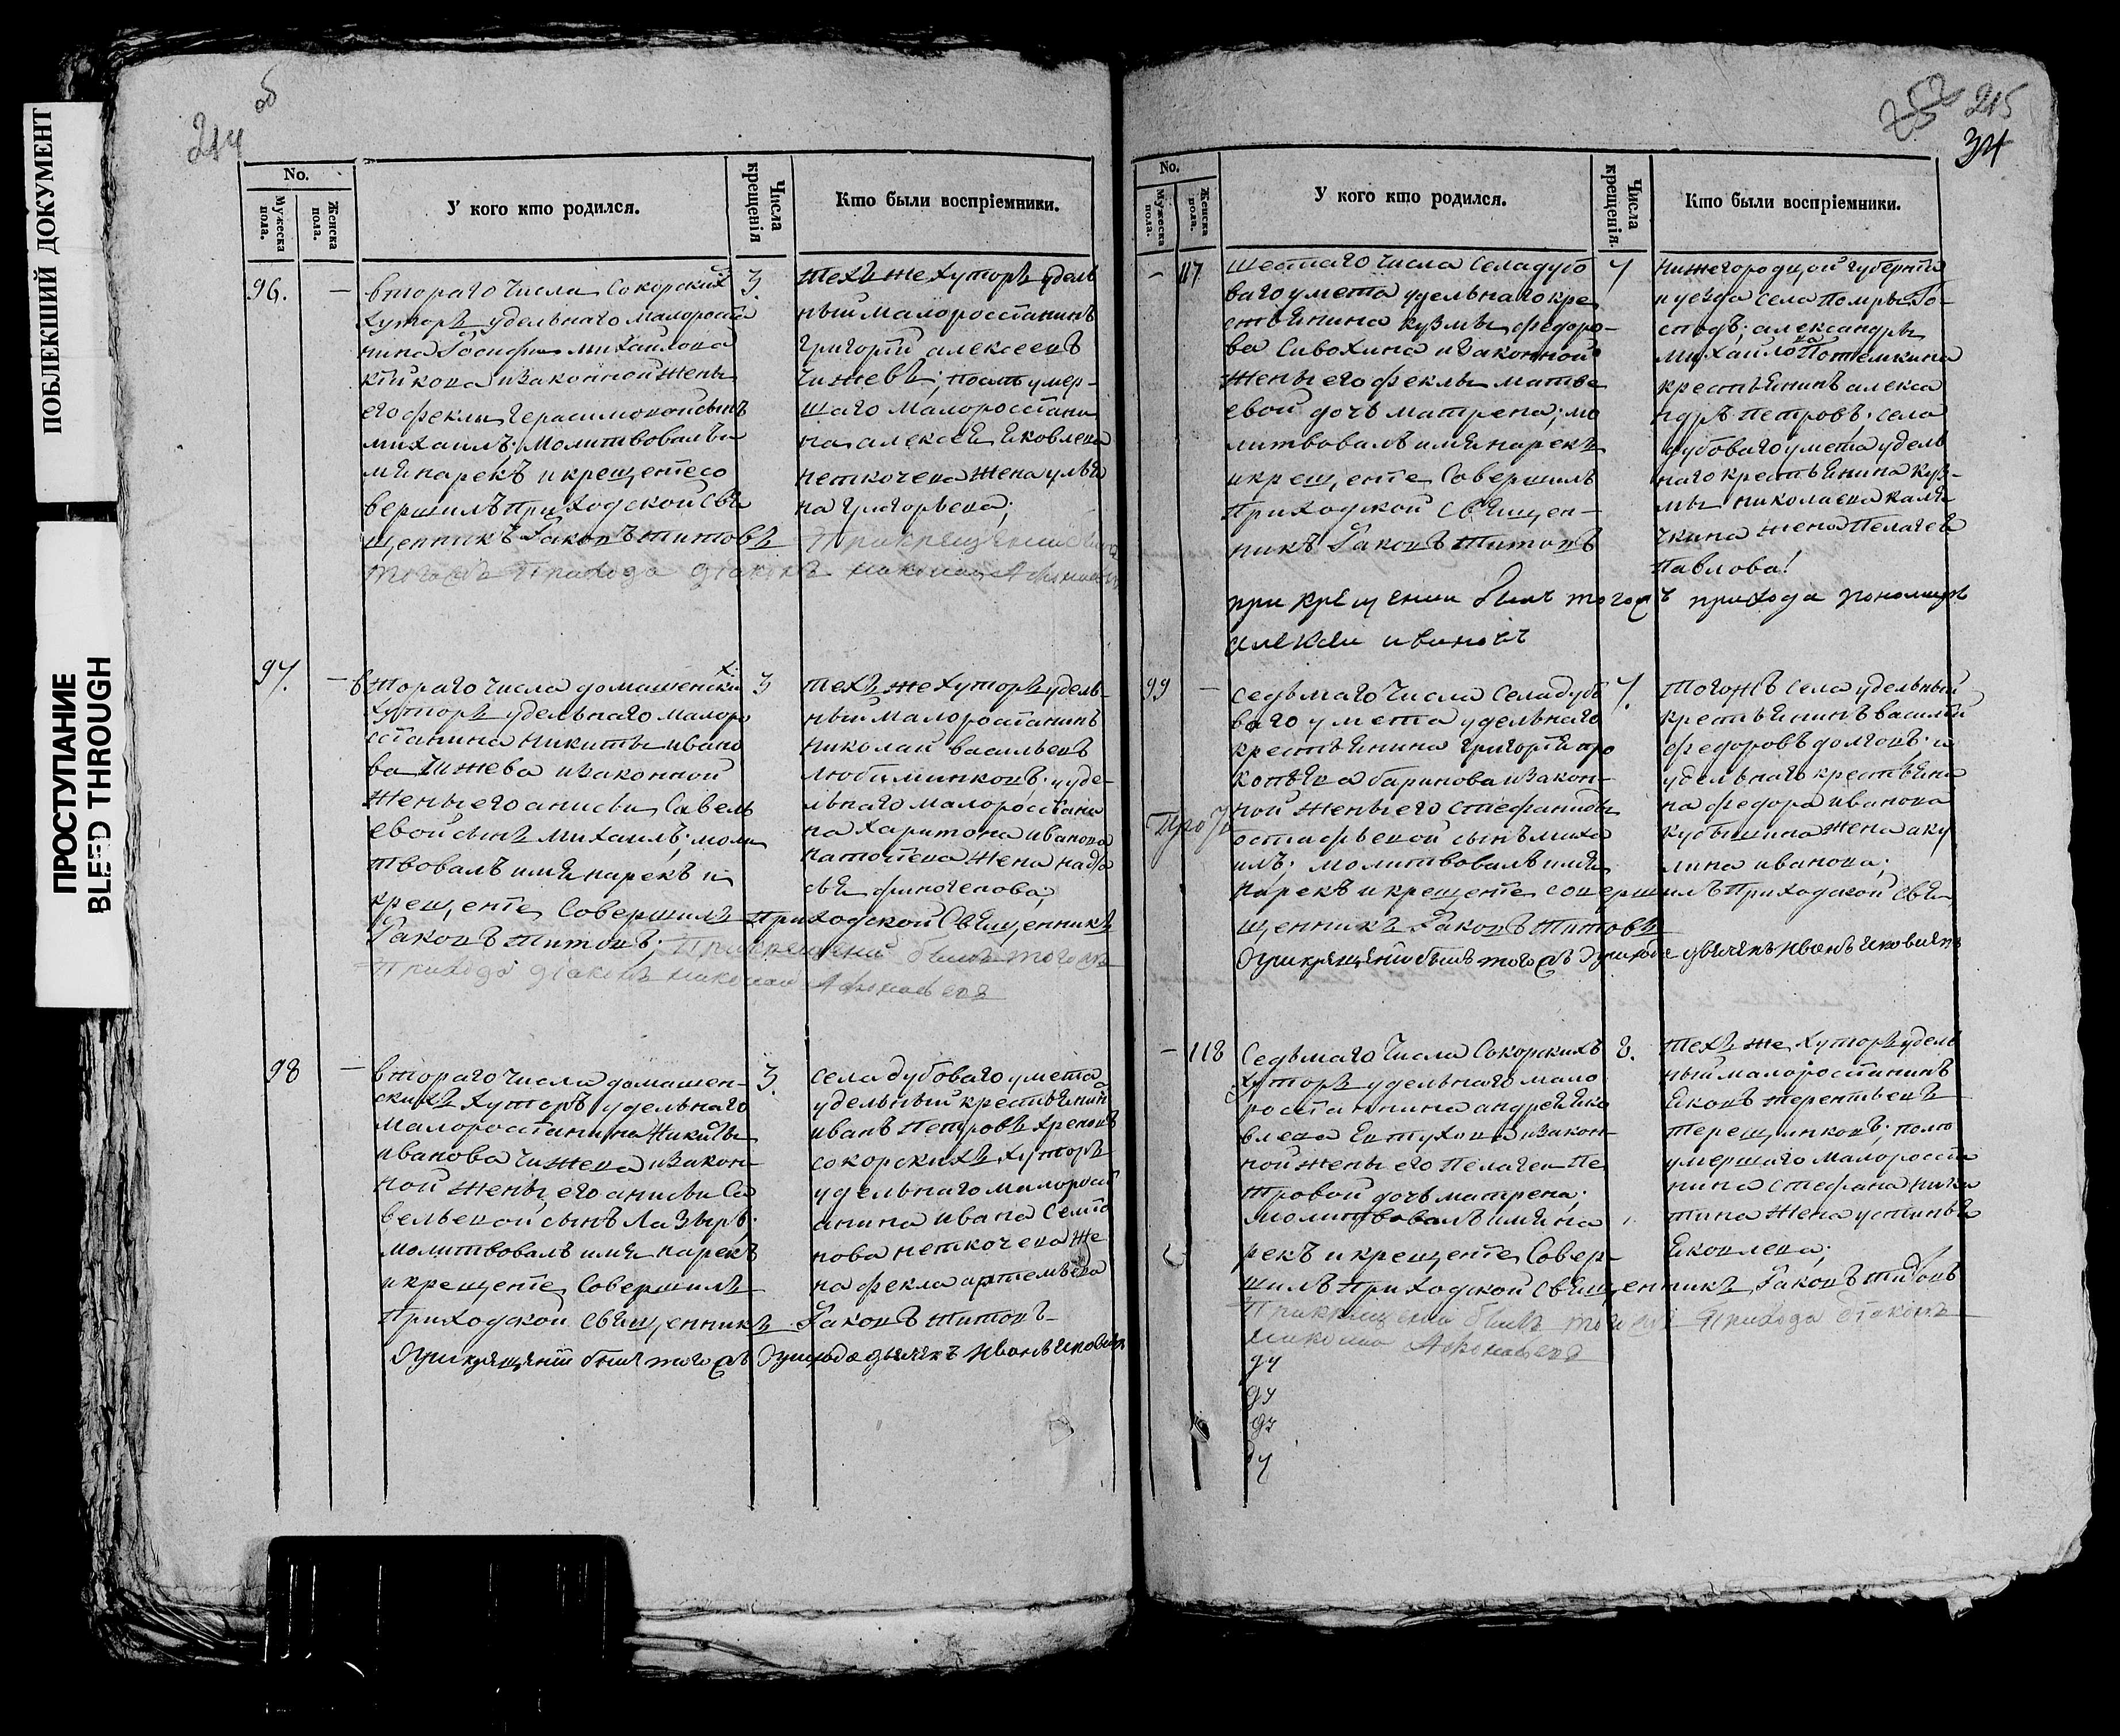 ПОБЛЕКШИЙ ДОКУМЕНТ
ПРОСТУПАНИЕ
BLEED THROUGH
214 об
No.
Мужеска пола.
Женска пола.
У кого кто родился.
Числа крещенія
Кто были воспріемники.
96. —
втораго числа Сокорских
хуторъ удельнаго малоросія
нина Іосифа михайлова
и законной жены
его феклы герасимовой сынъ
михаилъ; молитвовалъ и
мя нарекъ и крещеніе со
вершилъ приходской свя
щенникъ Іаковъ титовъ
3.
техъ же хуторъ удель
ный малоросіянинъ
григорій алексеевъ
чижевъ; и
умер-
шаго малоросіяни
на алексея яковлева
неткочева жена улья
на григорьева;
При крещеніи былъ
тогожъ прихода діаконъ николай
97. —
втораго числа домашенских
хуторъ удельнаго малоро
сіянина никиты ивано
ва чижева и законной
жены его анисьи Савель
евой сынъ михаилъ; моли
твовалъ имя нарекъ и
крещеніе Совершилъ приходской Священникъ
Іаковъ титовъ; При крещеніи былъ тогожъ
прихода діаконъ николай
3
техъ же хуторъ удель-
ный малоросіянинъ
николай васильевъ
любиминковъ; и уде-
льнаго малоросіяни
на харитона иванова
жена
98 —
втораго числа домашен-
скихъ хуторъ удельнаго
малоросіянина Никиты
иванова чижева и закон-
ной жены его анисьи Са
вельевой сынъ Лазырь;
молитвовалъ имя нарекъ
и крещеніе Совершилъ
Приходской священникъ Іаковъ титовъ
При крещеніи былъ тогожъ прихода дьячекъ Иванъ
3.
села дубоваго умета
удельный крестьянинъ
иванъ петровъ хреновъ
сокорскихъ хуторъ
удельнаго малоросі
янина ивана Семіо
нова неткочева же
на фекла артемьева
215
34
No.
Мужеска пола.
Женска пола.
У кого кто родился.
Числа крещенія.
Кто были воспріемники.
— 117
шестаго числа Села дубо
ваго умета удельнаго кре
стьянина кузмы федоро-
ва Сивохина и законной
жены его феклы матве
евой дочь матрена; мо
литвовалъ имя нарекъ
и крещеніе Совершилъ
Приходской Священ-
никъ Іаковъ титовъ
7
Нижегородцкой губерніи
и уезда села
Го-
сподъ; александры
михайловна Потемкина
крестьянинъ алекса
ндръ петровъ; села
дубоваго умета удель
наго крестьянина куз-
мы николаева каля
чкина жена пелагея
павлова!
при крещении былъ тогожъ прихода пономарь
алексеи ивановъ
99 —
седьмаго числа Села дубо
ваго умета удельнаго
крестьянина григорія про
копьева баринова и закон-
ной жены его стефаниды
остафьевой сынъ миха
илъ; молитвовалъ имя
нарекъ и крещеніе совершилъ Приходской Свя
щенникъ Іаковъ титовъ
При крещеніи былъ тогожъ прихода дьячекъ Иванъ
7.
тогожъ села удельный
крестьянинъ василій
федоровъ долговъ; и
удельнаго крестьяни
на федора иванова
жена аку
лина иванова;
— 118
Седьмаго числа Сокорскихъ
хуторъ удельнаго мало
росіянина андрея яко
влева Евтухова и закон-
ной жены его Пелагеи Пе
тровой дочь матрена;
молитвовалъ имя на
рекъ и крещеніе Совер-
шилъ Приходской Священникъ Іаковъ титовъ
При крещеніи былъ тогожъ прихода діаконъ
николай
8.
техъ же хуторъ удель
ный малоросіянинъ
Яковъ терентьевъ
терещенковъ;
умершаго малоросія
нина стефана ники
тина жена устинья
Яковлева;